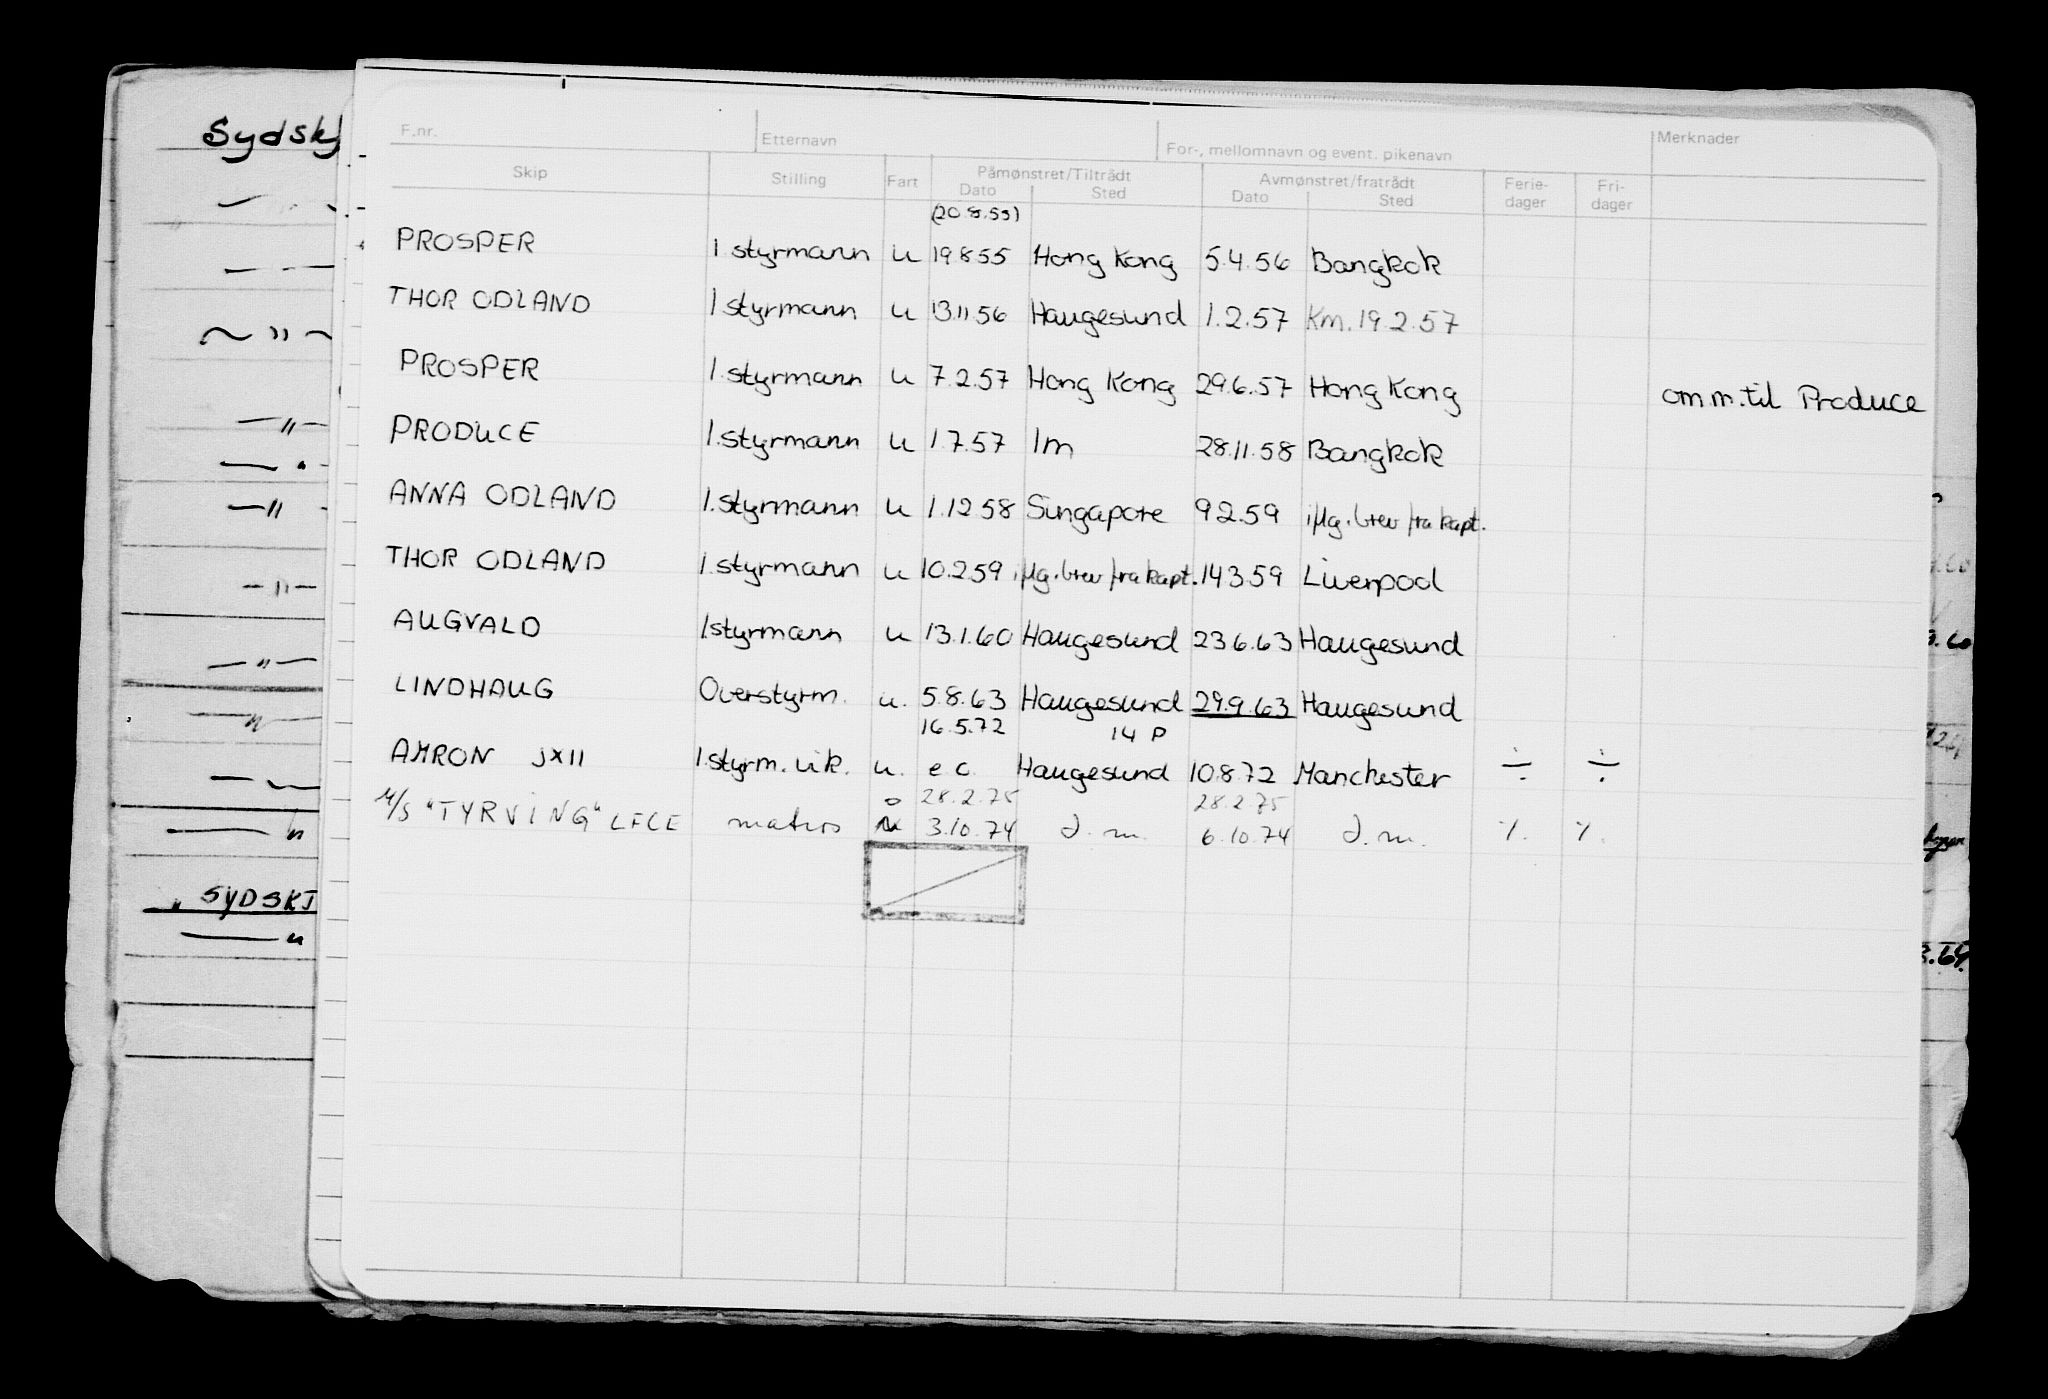 Sydskj
F.nr. Etternavn For-, mellomnavn og event. pikenavn Merknader
Skip Stilling Fart Påmønstret/Tiltrådt Avmønstret/fratrådt Ferie- Fri-
Dato Sted Dato Sted dager dager
(20.8.55)
PROSPER 1 styrmann u 19855 Hong Kong 5.4.56 Bangkok
THOR ODLAND 1 styrmann u 13.11.56 Haugesund 1.2.57 Km. 19.2.57
PROSPER 1.styrmann u 7.2.57 Hong Kong 29.6.57 Hong Kong omm.til Produce
PRODUCE 1.styrmann u 1.7.57 Im 28.11.58 Bangkok
ANNA ODLAND 1.styrmann u 1.12.58 Singapore 9.2.59 iflg.brev fra kapt.
THOR ODLAND 1.styrmann u 10.2.59 iflg.brev fra kapt. 14.3.59 Liverpool
AUGVALD 1.styrmann u 13.1.60 Haugesund 23.6.63 Haugesund
LINDHAUG Overstyrm. u. 5.8.63 Haugesund 29.9.63 Haugesund
16.5.72 14 P
AKRON JXII 1.styrm.vik. u. e.c. Haugesund 10.8.72 Manchester ÷ ÷
28.2.75 28.2.75
M/S "TYRVING" LFCE matros 3.10.74 d.m. 6.10.74 d.m. ٪. ٪.
" SYDSKJ